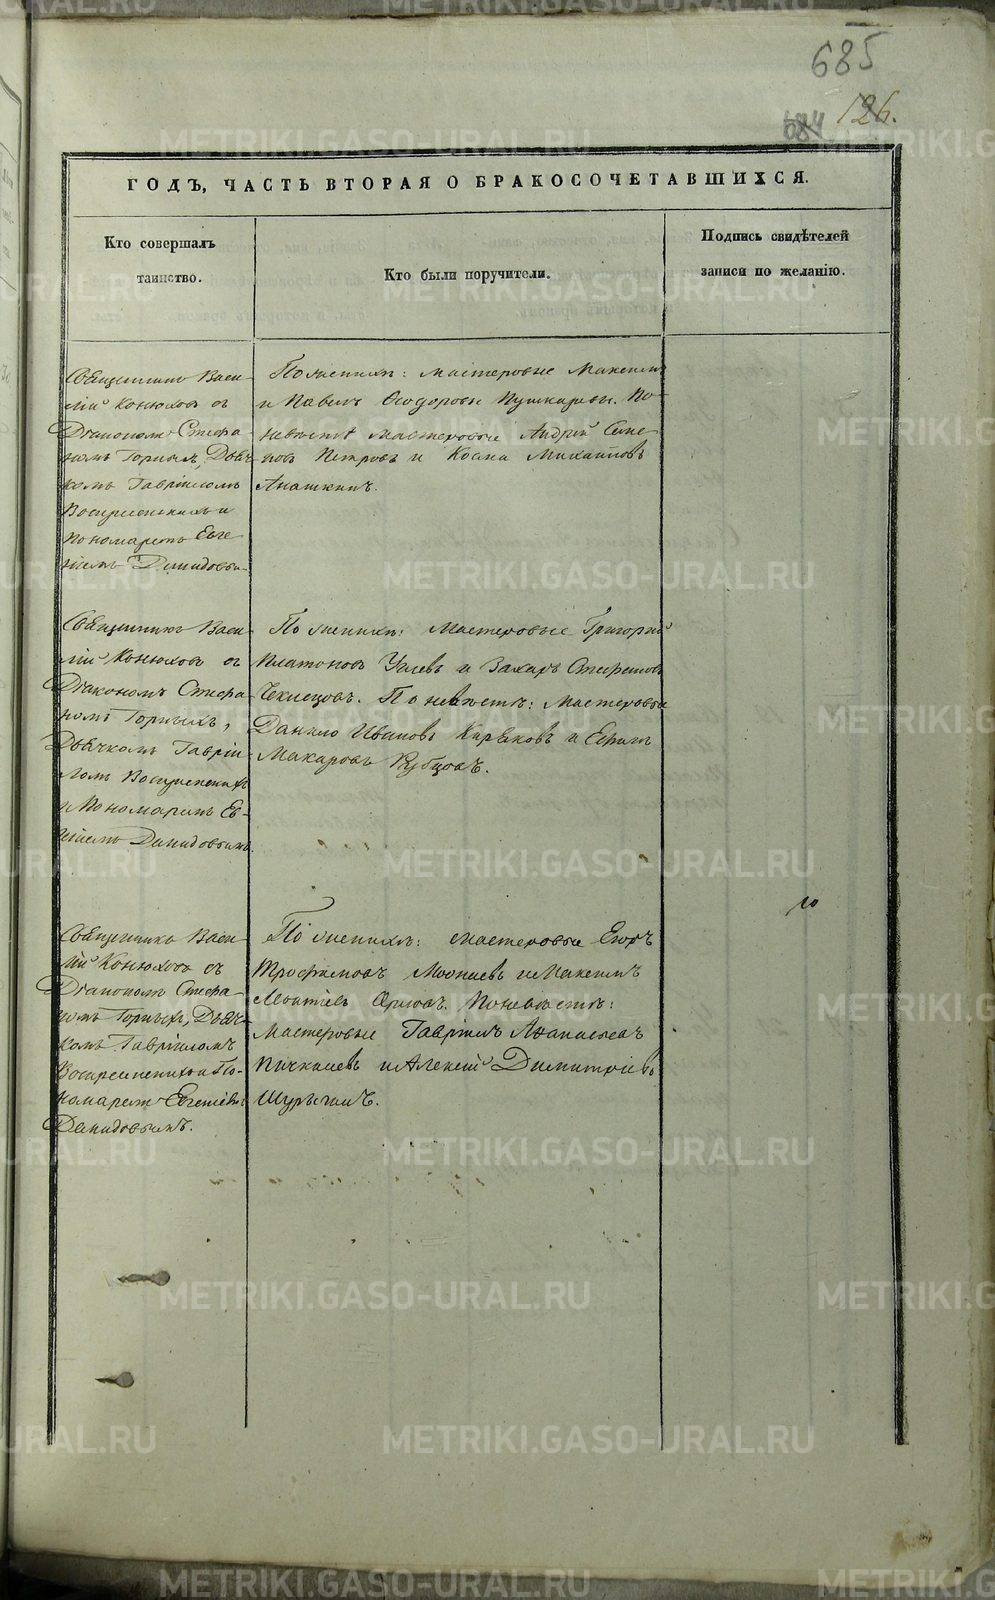 685
684 126.
ГОДЪ, ЧАСТЬ ВТОРАЯ О БРАКОСОЧЕТАВШИХСЯ.
Кто совершалъ
таинство.
Кто были поручители.
Подпись свидѣтелей
записи по желанію.
Священникъ Васи-
лій Конюховъ съ
Діакономъ Стефа-
номъ Горныхъ, Дьяч-
комъ Гавріиломъ
Воскресенскихъ и
Пономаремъ Евге-
ніемъ Демидовы-
По женихѣ: мастеровые Максимъ
и Павелъ Ѳеодоровы Пушкаревы. По
невѣстѣ мастеровые Андрей Семе-
новъ Петровъ и Косма Михаиловъ
Анашкинъ.
Священникъ Васи-
лій Конюховъ съ
Діакономъ Стефа-
номъ Горныхъ,
Дьячкомъ Гаврiи-
ломъ Воскресенскихъ
и Пономаремъ Ев-
геніемъ Демидовымъ.
По женихѣ: мастеровые Григорій
Платоновъ и Захаръ
По невѣстѣ: мастеровые
Данило Ивановъ Киряковъ и Ефимъ
Макаровъ Рубцовъ.
Священникъ Васи-
лій Конюховъ съ
Діакономъ Стефа-
номъ Горныхъ, Дьяч-
комъ Гавріиломъ
Воскресенскихъ и По-
номаремъ Евгеніемъ
Демидовымъ.
По женихѣ: мастеровые Егоръ
Трофимовъ и Максимъ
Орловъ. По невѣстѣ:
мастеровые Гавріилъ Аѳанасьевъ
и Алексій Димитріевъ
METRIKI.GASO-URAL.RU